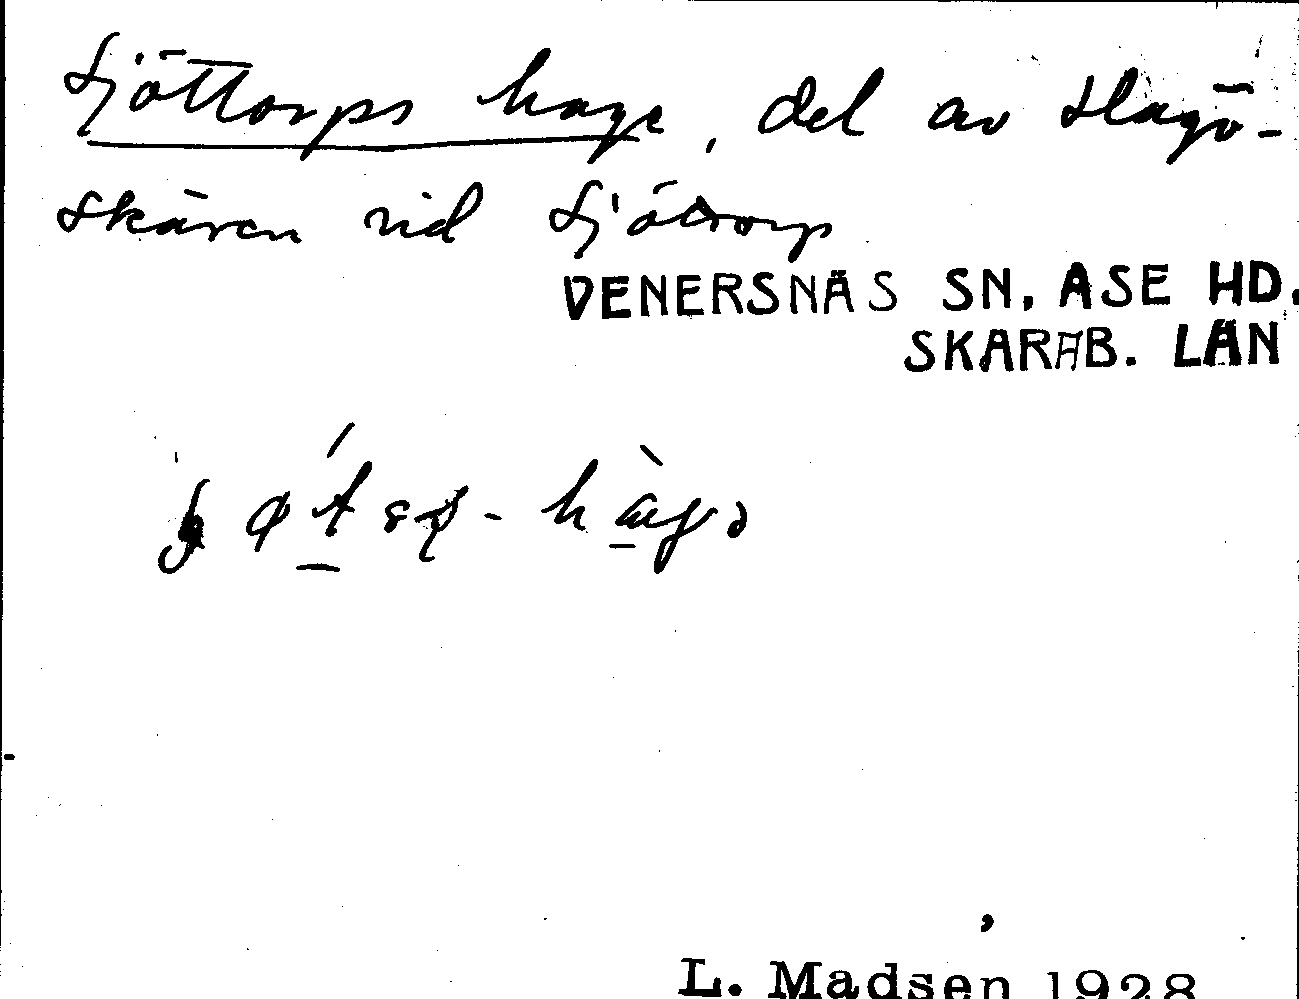 Sjöttorps hage, del av Hagö-
skären vid Sjötorp
VENERSNÄS SN. ASE HD.
SKARAB. LÄN
L. Madsen 1928